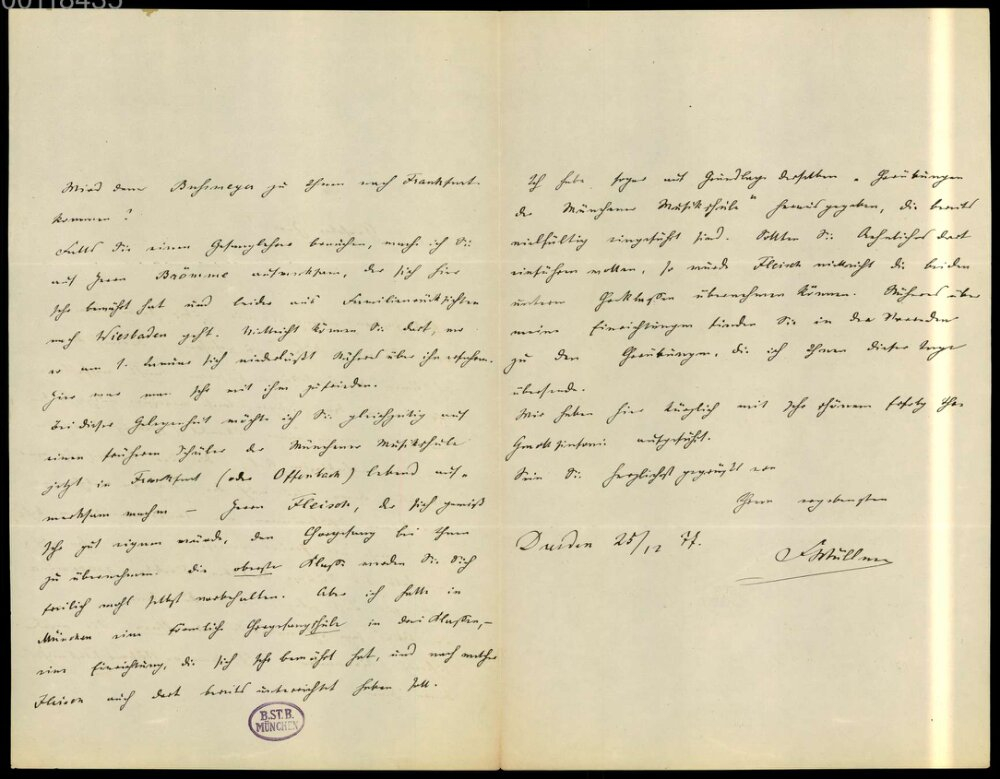 00118435
Wird denn Bußmeyer zu Ihnen nach Frankfurt
kommen?
Falls Sie einen Gesanglehrer brauchen, mache ich Sie
auf Herrn Brömme aufmerksam, der sich hier
sehr bewährt hat und leider aus Familienrücksichten
nach Wiesbaden geht. Vielleicht können Sie dort, wo
er am 1. Januar sich niederläßt Näheres über ihn erfahren.
Hier war man sehr mit ihm zufrieden.
Bei dieser Gelegenheit möchte ich Sie gleichzeitig auf
einen früheren Schüler der Münchener Musikschule
jetzt in Frankfurt (oder Offenbach) lebend auf-
merksam machen – Herrn Fleisch, der sich gewiß
sehr gut eignen würde, den Chorgesang bei Ihnen
zu übernehmen. Die oberste Klasse werden Sie Sich
freilich wohl selbst vorbehalten. Aber ich hatte in
München eine förmliche Chorgesangschule in drei Klassen, –
eine Einrichtung, die sich sehr bewährt hat, und nach welcher
Fleisch auch dort bereits unterrichtet haben soll.
B.ST.B.
MÜNCHEN
Ich habe sogar auf Grundlage derselben „Chorübungen
der Münchener Musikschule" herausgegeben, die bereits
vielfältig eingeführt sind. Sollten Sie Aehnliches dort
einführen wollen, so würde Fleisch vielleicht die beiden
untern Chorklassen übernehmen können. Näheres über
meine Einrichtungen finden Sie in den Vorreden
zu den Chorübungen, die ich Ihnen dieser Tage
übersende.
Wir haben hier kürzlich mit sehr schönem Erfolg Ihre
Gmollsinfonie aufgeführt.
Sein Sie herzlichst gegrüßt von
Ihrem ergebensten
Dresden 25/12 77.
FWüllner